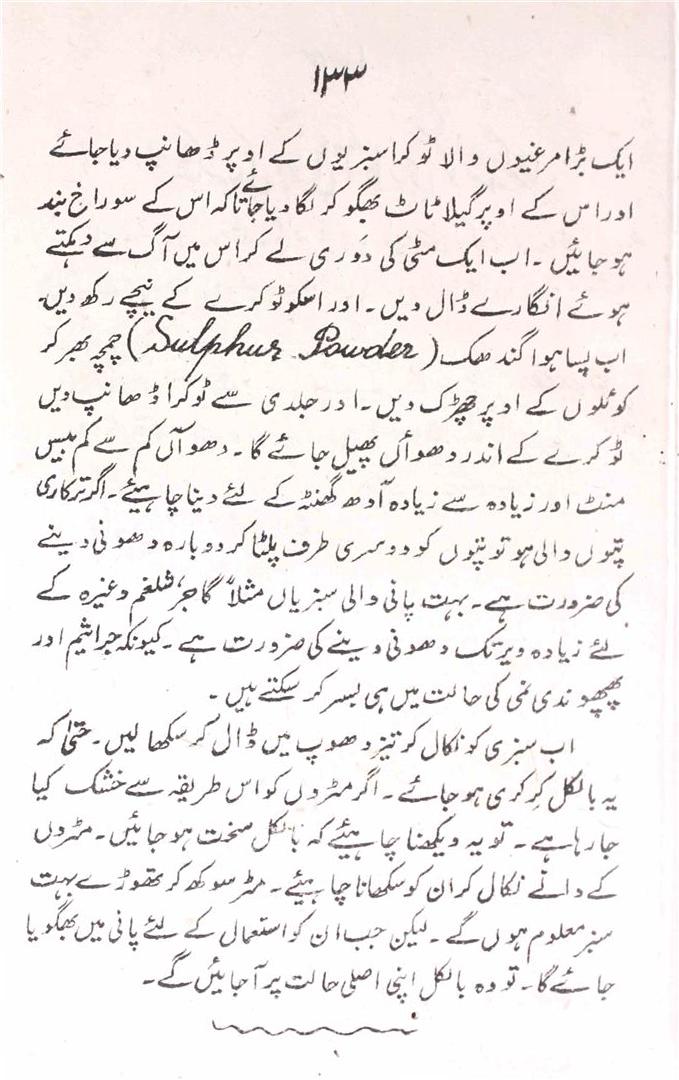 ۱۳۳
ایک بڑا مرغیوں والا ٹوکرا سبزیوں کے اوپر ڈھانپ دیا جائے
اور اس کے اوپر گیلا ٹاٹ بھگو کر لگا دیا جائے تاکہ اس کے سوراخ بند
ہو جائیں ۔ اب ایک مٹی کی دَوری لے کر اس میں آگ سے دہکتے
ہوئے انگارے ڈال دیں ۔ اور اسکو ٹوکرے کے نیچے رکھ دیں۔
اب پسا ہوا گندھک (Sulphur Powder) چمچہ بھر کر
کوئلوں کے اوپر چھڑک دیں ۔ اور جلدی سے ٹوکرا ڈھانپ دیں
ٹوکرے کے اندر دھوآں پھیل جائے گا ۔ دھوآں کم سے کم بیس
منٹ اور زیادہ سے زیادہ آدھ گھنٹہ کے لئے دینا چاہیئے۔ اگر ترکاری
پتوں والی ہو تو پتوں کو دوسری طرف پلٹا کر دوبارہ دھونی دینے
کی ضرورت ہے ۔ بہت پانی والی سبزیاں مثلاً گاجر، شلغم وغیرہ کے
لئے زیادہ دیر تک دھونی دینے کی ضرورت ہے ۔ کیونکہ جراثیم اور
پھپھوندی نمی کی حالت میں ہی بسر کر سکتے ہیں ۔
اب سبزی کو نکال کر تیز دھوپ میں ڈال کر سکھا لیں ۔ حتیٰ کہ
یہ بالکل کِرکری ہو جائے ۔ اگر مٹروں کو اس طریقہ سے خشک کیا
جا رہا ہے ۔ تو یہ دیکھنا چاہیئے کہ بالکل سخت ہو جائیں ۔ مٹروں
کے دانے نکال کر ان کو سکھانا چاہیئے ۔ مٹر سوکھ کر تھوڑے بہت
سبز معلوم ہوں گے ۔ لیکن جب ان کو استعمال کے لئے پانی میں بھگویا
جائے گا ۔ تو وہ بالکل اپنی اصلی حالت پر آ جائیں گے ۔